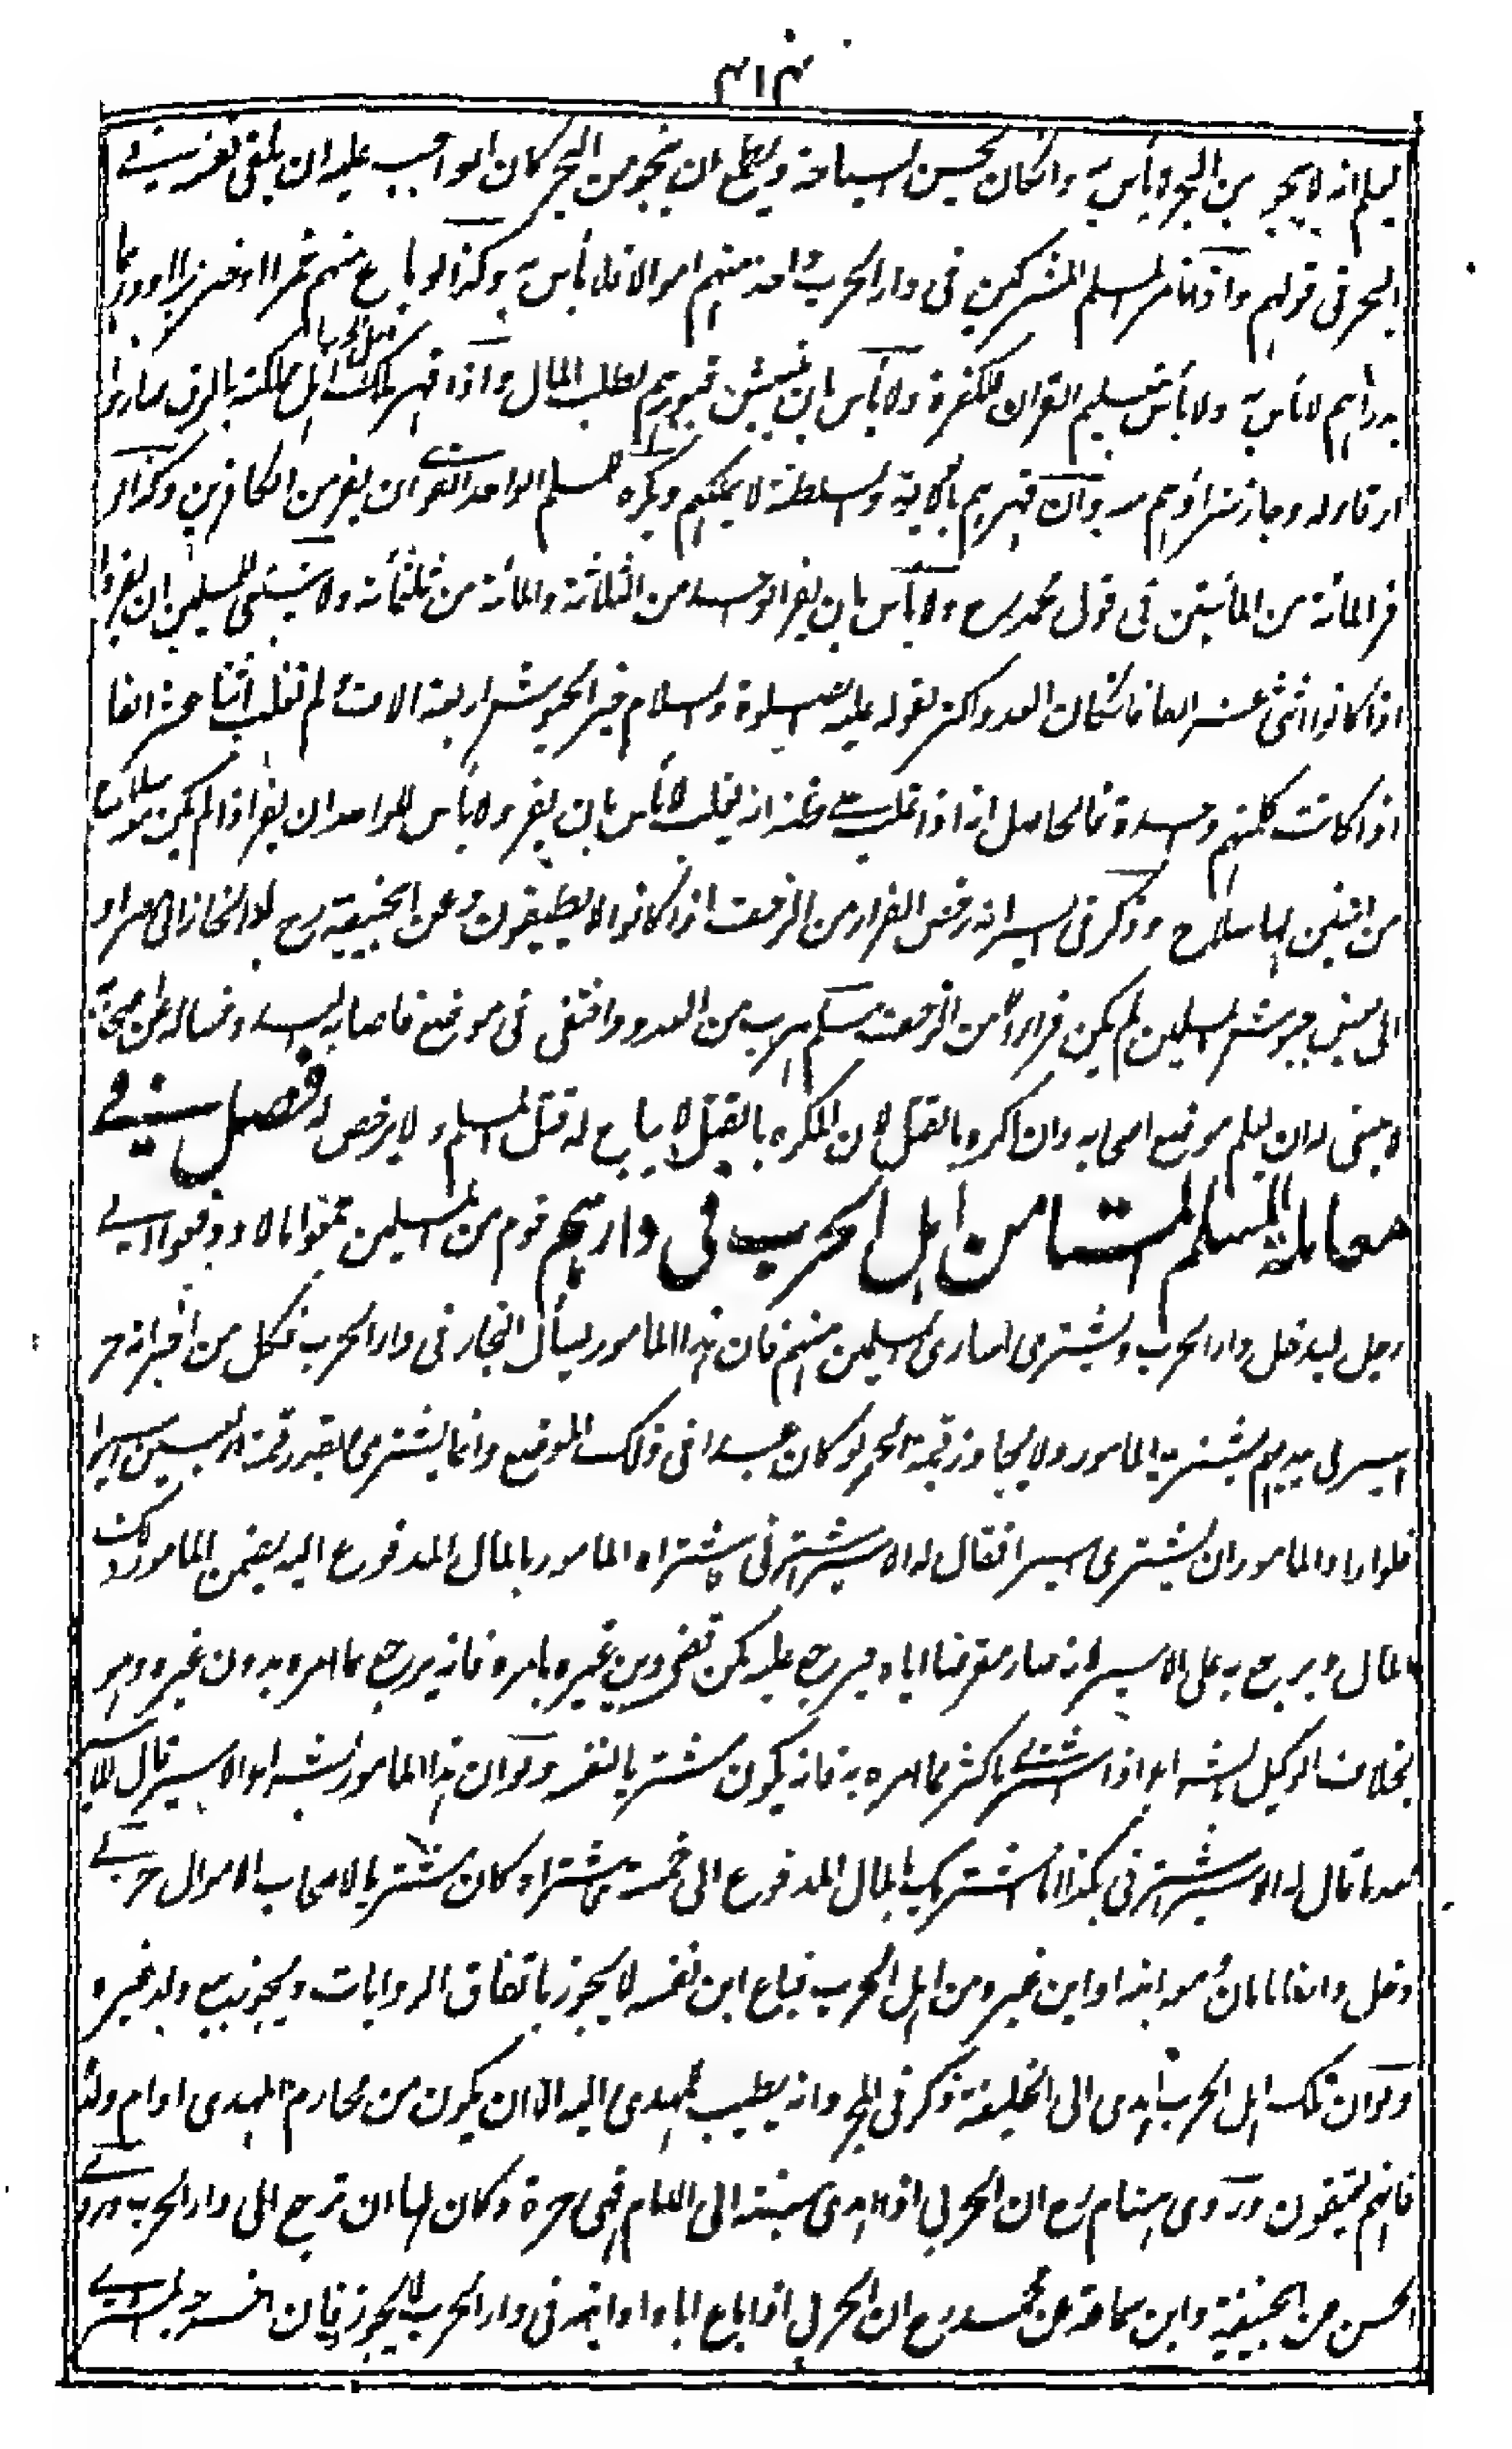 يعلم انه لا ينجو من البحر لا بأس به وان كان يحسن السباحة ويطمع ان ينجو من البحر كان الواجب عليه ان يلقى نفسه في
البحر في قولهم واذا قامر المسلم المشركين في دار الحرب واخذ منهم اموالا فلا بأس به وكذا لو باع منهم خمرا او خنزيرا او درهما
بدراهم لا بأس به ولا بأس بتعليم القرآن للكفرة ولا بأس بان ينبش قبورهم لطلب المال واذا قهر ملك اهل مملكة بالرق صاروا
ارقاء له وجاز شراؤهم منه وان قهرهم بالولاية والسلطنة لا يملكهم ويكره للمسلم الواحد القوى ان يفر من الكافرين وكذا لو
فر المائة من المأتين في قول محمد رح ولا بأس بان يفر الواحد من الثلاثة والمائة من ثلثمائة ولا ينبغي للمسلمين ان يفروا
اذا كانوا اثنى عشر الفا وان كان العدو اكثر لقوله عليه الصلوة والسلام خير الجيوش اربعة الاف لم تغلب اثنا عشر الفا
اذا كانت كلمتهم واحدة فالحاصل انه اذا غلب على ظنه انه يغلب لا بأس بان يفر ولا بأس للواحد ان يفر اذا لم يكن معه سلاح
من اثنين لهما سلاح وذكر في السير انه رخص الفرار من الزحف اذا كانوا لا يطيقون وعن ابيحنيفة رح لو انحازا الى مصر او
الى بعض جيوش المسلمين لم يكن فرارا من الزحف مسلم هرب من العدو واختفى في موضع فاصابه العدو وساله عن اصحابه
لا ينبغي له ان يعلم موضع اصحابه وان اكره بالقتل لان المكره بالقتل لا يباح له قتل المسلم ولا يرخص له فصل في
معاملة المسلم المستامن اهل الحرب في دارهم قوم من المسلمين جمعوا مالا ودفعوا الى
رجل ليدخل دار الحرب ويشترى اسارى المسلمين منهم فان هذا المامور يسأل التجار في دار الحرب فكل من اخبر انه حر
اسير في يديهم يشتريه المامور ولا يجاوز قيمة الحر لو كان عبدا في ذلك الموضع وانما يشترى بقدر قيمته
فلو اراد المامور ان يشترى اسيرا فقال له الاسير اشترني فاشتراه المامور بالمال المدفوع اليه يضمن المامور ذلك
المال ويرجع به على الاسير لانه صار مقرضا اياه فيرجع عليه كمن قضى دين غيره بامره فانه يرجع بما امره بدون غيره وهو
بخلاف الوكيل بشراء اذا اشترى باكثر مما امره به فانه يكون مشتريا لنفسه ولو ان هذا المامور بشراء الاسير قال للاسير
بعد ما قال له الاسير اشترني بكذا انما اشتريك بالمال المدفوع الى فاشتراه كان مشتريا لاصحاب الاموال حربي
دخل دارنا بامان ومعه ابنه او ابن غيره من اهل الحرب فباع ابن نفسه لا يجوز باتفاق الروايات ويجوز بيع ولد غيره
ولو ان ملك اهل الحرب اهدى الى الخليفة ذكر في المجرد انه يطيب للمهدى اليه الا ان يكون من محارم المهدى او ام ولد
فانهم يعتقون وروى هشام رح ان الحربي اذا اهدى بنته الى الامام فهى حرة وكان لها ان ترجع الى دار الحرب وروى
الحسن عن ابيحنيفة وابن سماعة عن محمد رح ان الحربي اذا باع اباه او ابنه في دار الحرب لا يجوز فان اخرجه المشترى